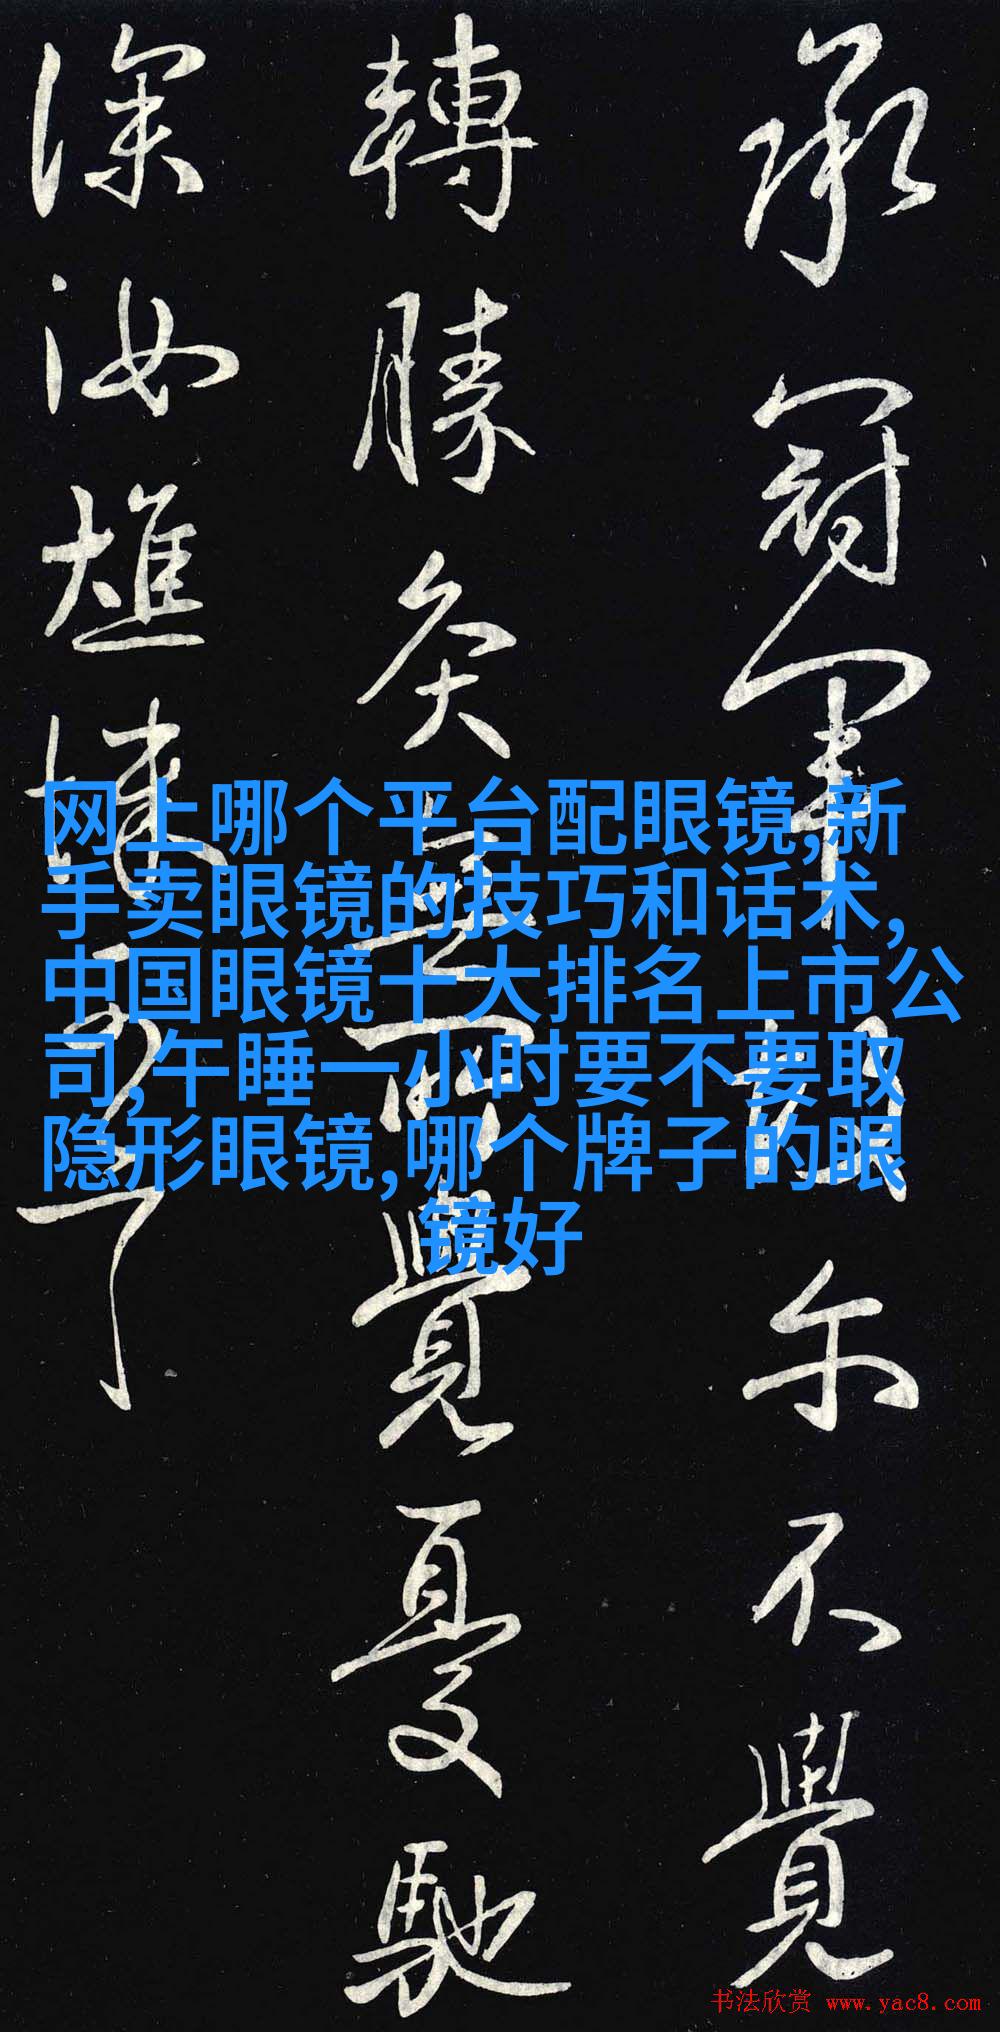 承冠軍 尓不覺
轉勝灸 而覺憂馳
深汝燋
网上哪个平台配眼镜,新
手卖眼镜的技巧和话术,
中国眼镜十大排名上市公
司,午睡一小时要不要取
隐形眼镜,哪个牌子的眼
镜好
书法欣赏 www.yac8.com